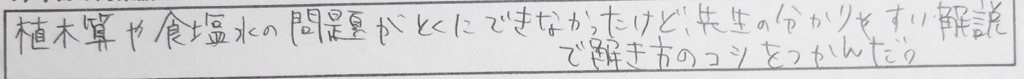 植木算や食塩水の問題がとくにできなかったけど、先生の分かりやすい解説
で解き方のコツをつかんだ。